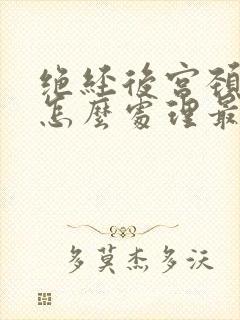 絕經後宮頸
怎麼處理最
多莫杰多沃